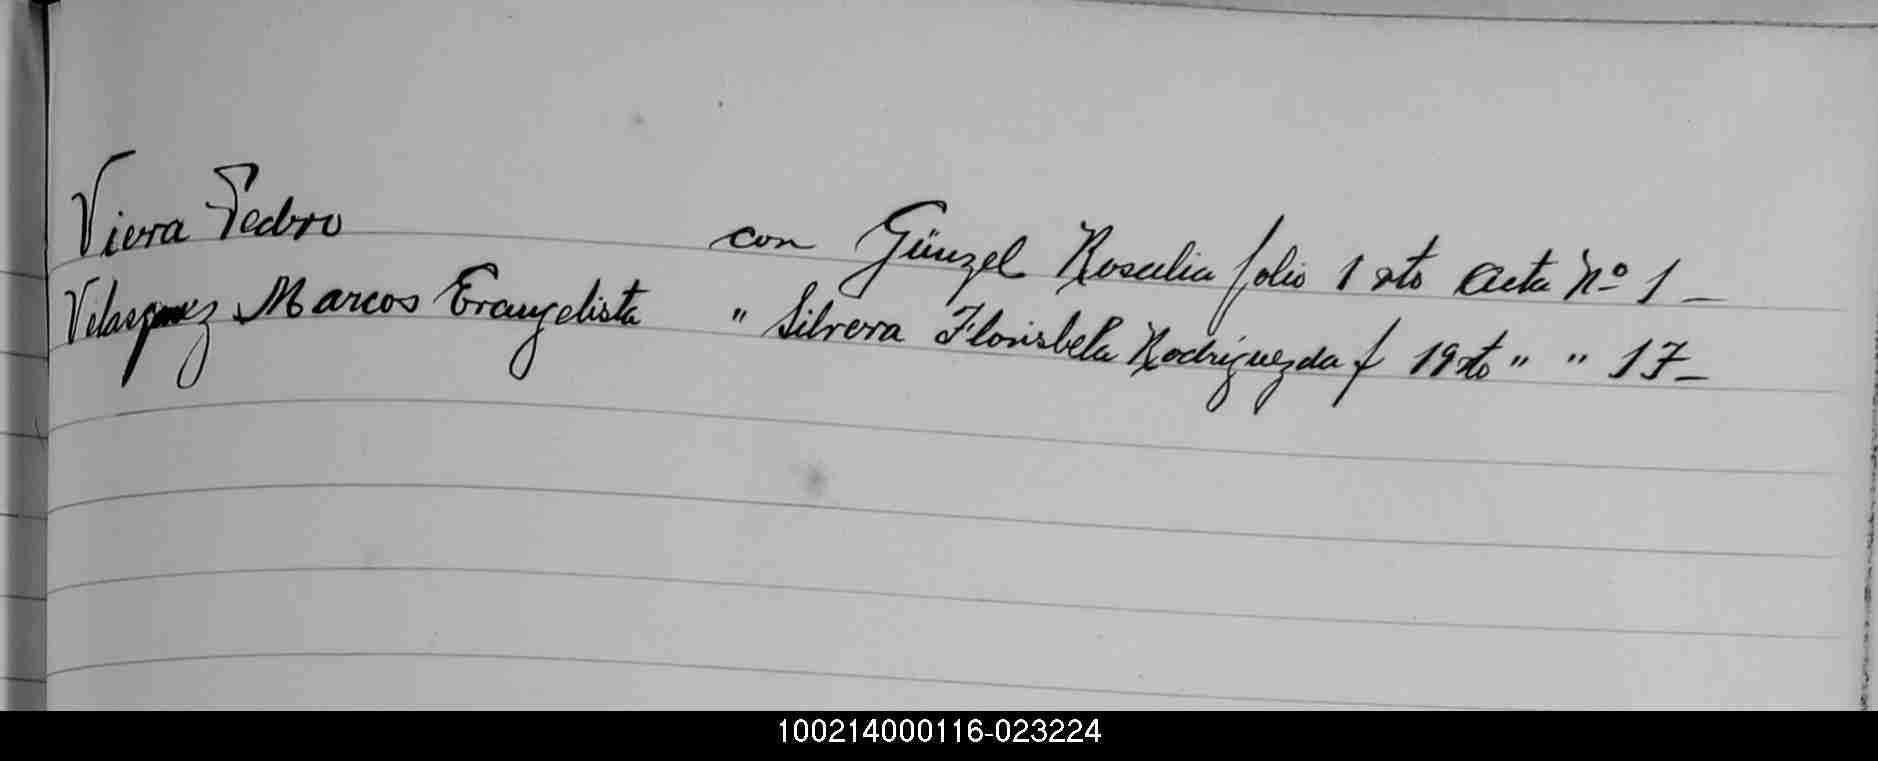 Viera Pedro con Günzel Rosalia folio 1 vto Acta Nº 1 —
Velasquez Marcos Evangelista " Silvera Florisbela Rodriguez da f 19 vto " " 17 —
100214000116-023224